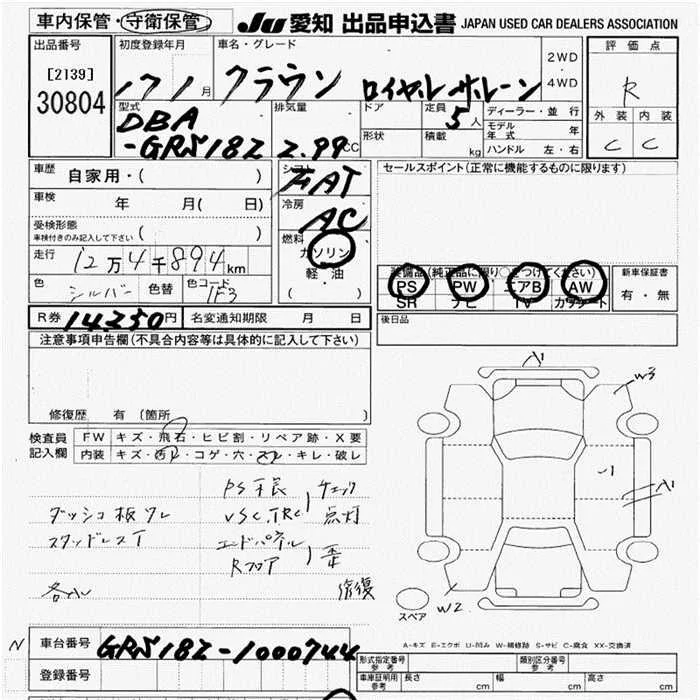 車内保管・守衛保管
JU 愛知 出品申込書 JAPAN USED CAR DEALERS ASSOCIATION
出品番号
[2139]
30804
初度登録年月
17 1 月
車名・グレード
クラウン ロイヤルサルーン
2WD
・
4WD
評価点
R
外装 内装
C C
型式
DBA
-GRS182
排気量
2.99 CC
ドア
形状
定員
5 人
積載
kg
ディーラー・並行
モデル年式 年
ハンドル 左・右
車歴 自家用・( )
車検 年 月( 日)
受検形態
車検付きのみ記入して下さい ( )
走行 12万4千894km
色 シルバー 色替 色コード 1F3
シフト
FAT
冷房
AC
燃料
ガソリン
軽・油
( )
セールスポイント(正常に機能するものに限ります)
装備品(純正品に限り○をつけてください)
PS PW エアB AW
SR ナビ TV カワシート
新車保証書
有・無
R券 14,250円 名変通知期限 月 日
後日品
注意事項申告欄(不具合内容等は具体的に記入して下さい)
修復歴 有 (箇所
検査員
記入欄
FW キズ・飛石・ヒビ割・リペア跡・X要
内装 キズ・汚れ・コゲ・穴・スレ・キレ・破レ
ダッシュ板ワレ
スタッドレスT
VSC.TRC
チェック
点灯
エンドパネル
Rフロア
歪
修復
A1
W3
1
A1
W2
スペア
A-キズ E-エクボ U-凹み W-補修跡 S-サビ C-腐食 XX-交換済
N
車台番号 GRS182-1000744
登録番号
形式指定番号
参考
類別区分番号
参考
車庫証明用
参考
長さ cm 幅 cm 高さ cm